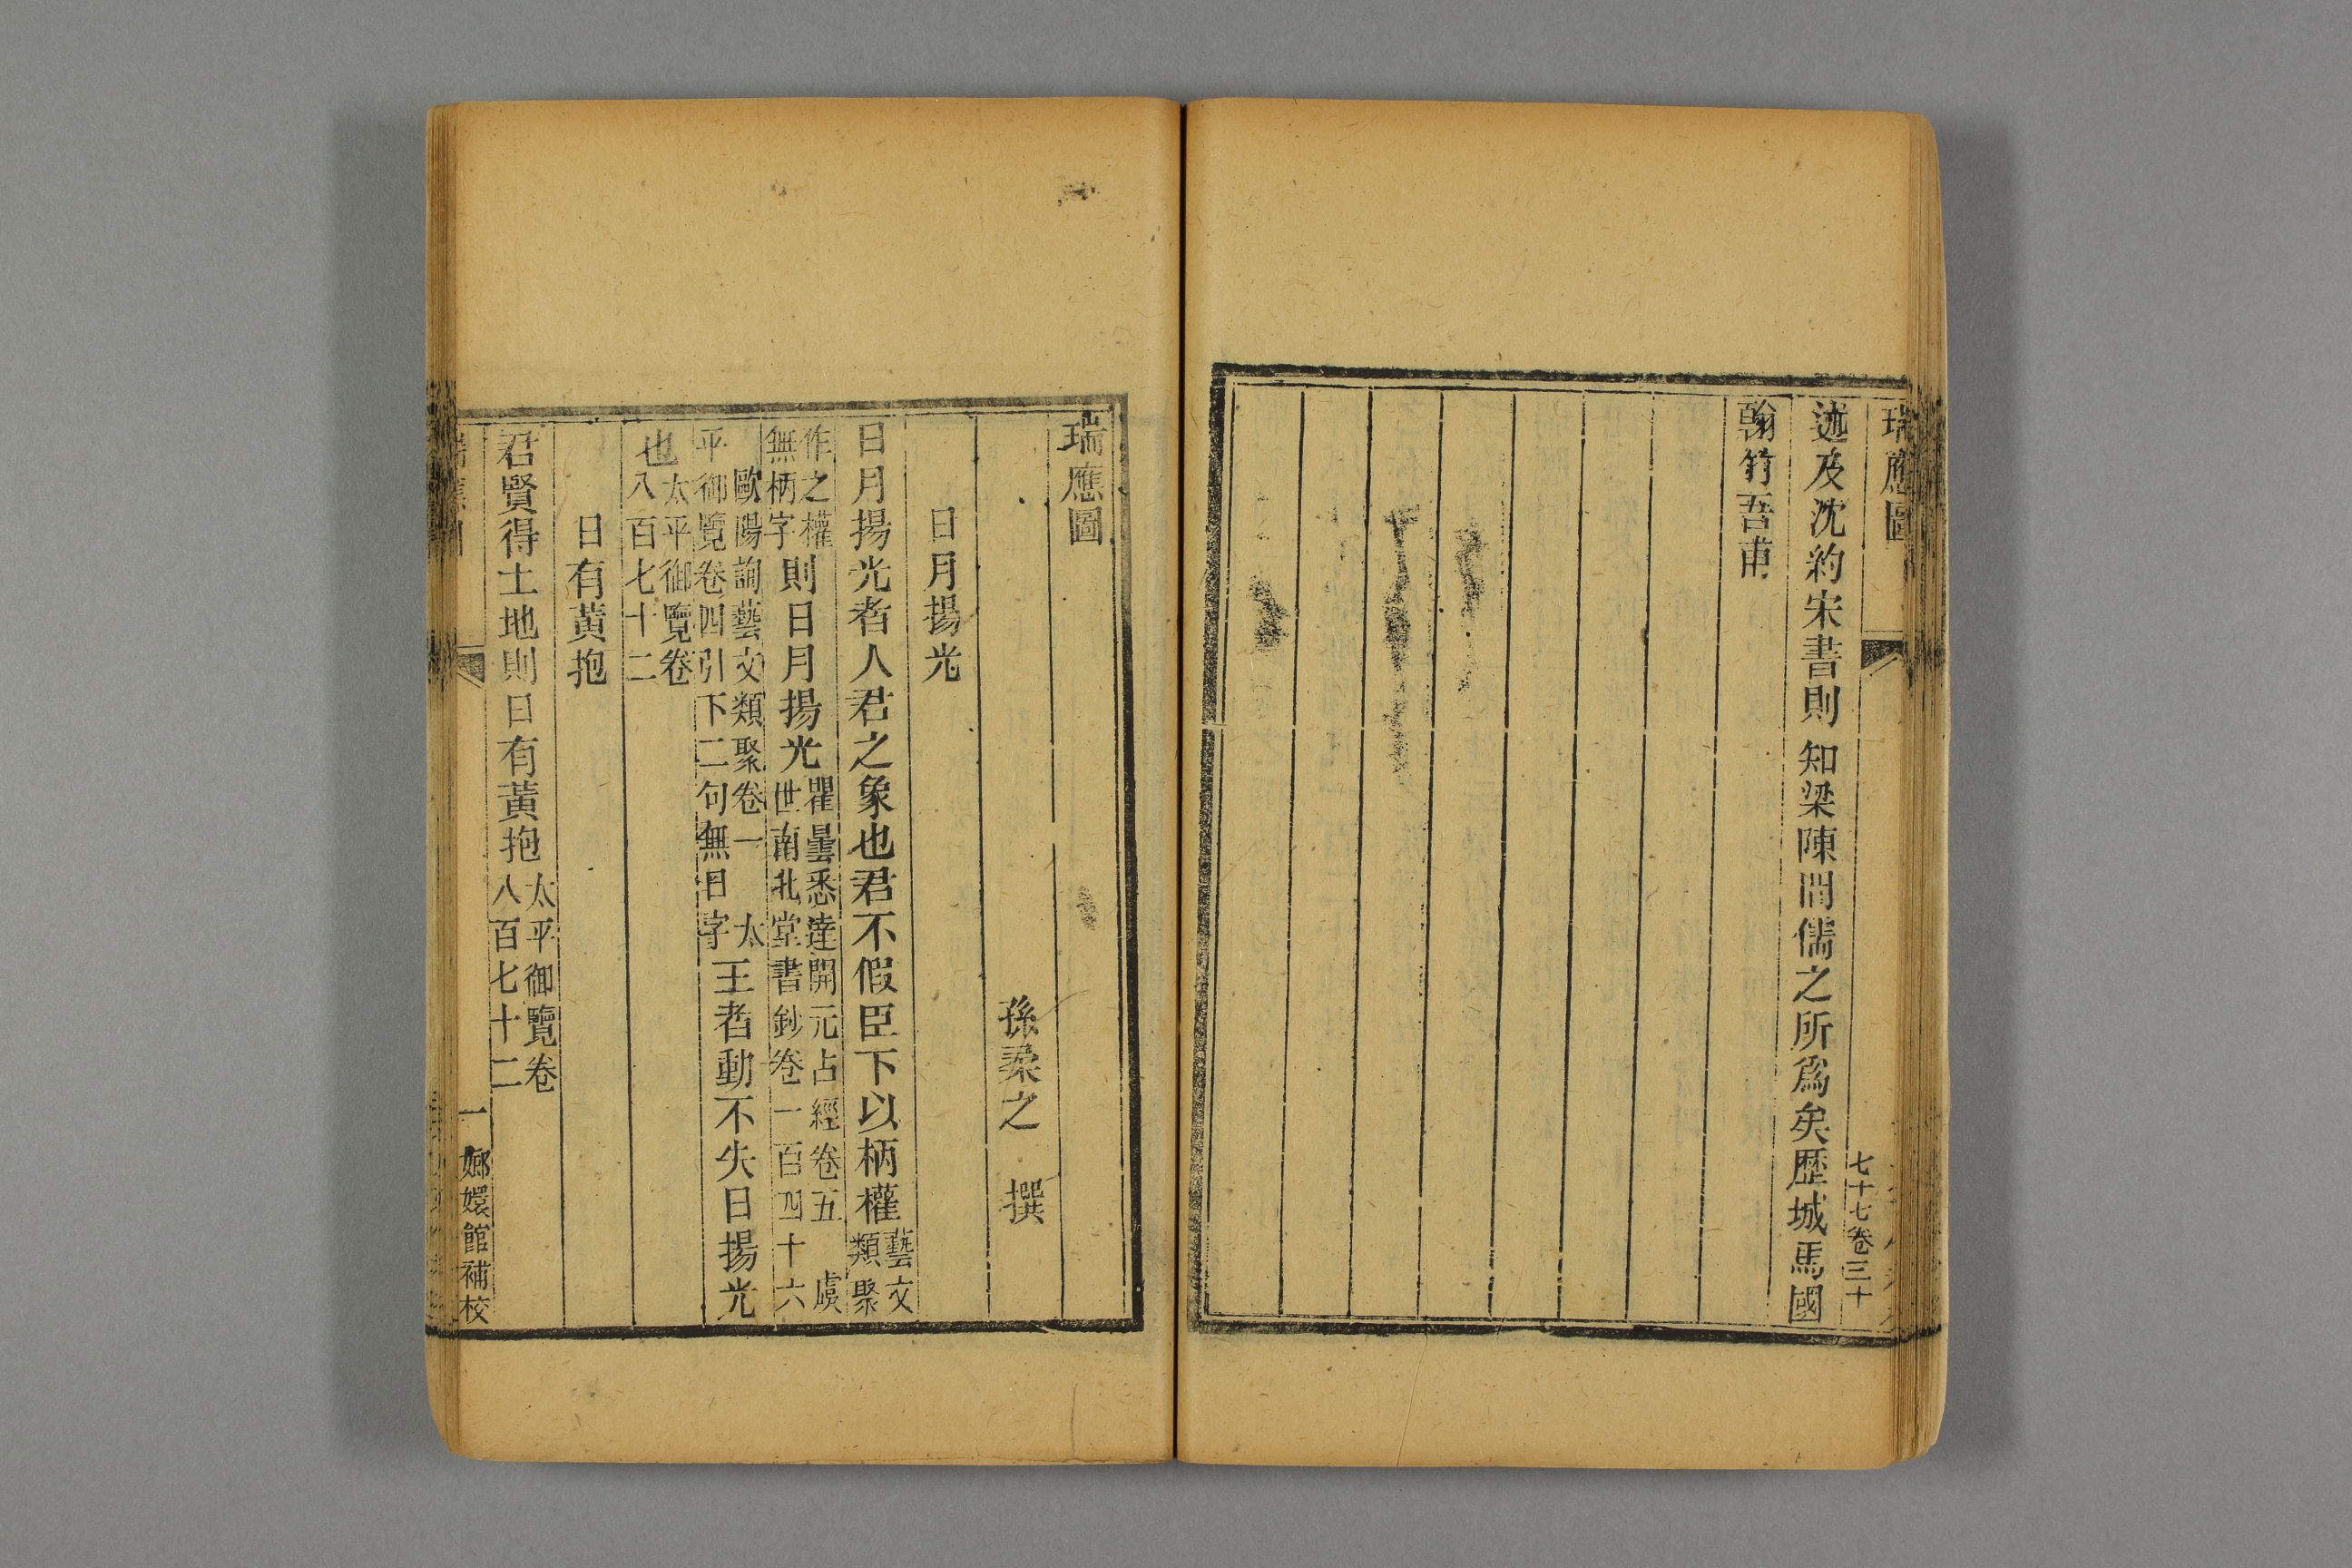 瑞應圖
七十七卷三十
述及沈約宋書則知梁陳間儒之所爲矣歷城馬國
翰竹吾甫
瑞應圖
孫柔之撰
日月揚光
日月揚光者人君之象也君不假臣下以柄權藝文類聚
作之權無柄字則日月揚光瞿曇悉達開元占經卷五 虞世南北堂書鈔卷一百四十六
歐陽詢藝文類聚卷一 太平御覽卷四引下二句無日字王者動不失日揚光
也太平御覽卷八百七十二
日有黃抱
君賢得土地則日有黃抱太平御覽卷八百七十二
一
嫏嬛館補校